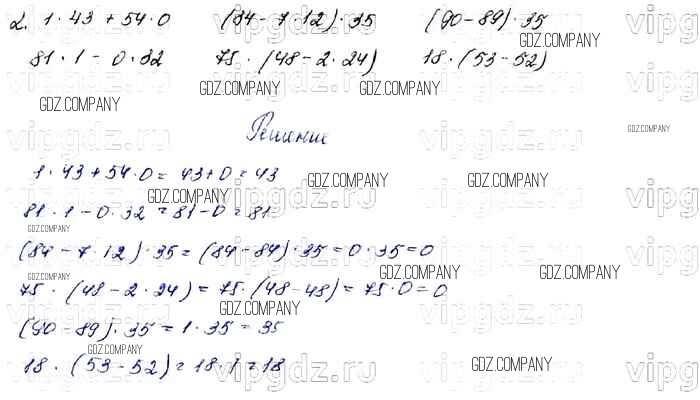 2. 1 · 43 + 54 · 0 (84 - 7 · 12) · 35 (90 - 89) · 35
81 · 1 - 0 · 32 75 · (48 - 2 · 24) 18 · (53 - 52)
GDZ.COMPANY
GDZ.COMPANY GDZ.COMPANY GDZ.COMPANY
Решение
GDZ.COMPANY
vipgdz.ru vipgdz.ru vipg
1 · 43 + 54 · 0 = 43 + 0 = 43
GDZ.COMPANY GDZ.COMPANY GDZ.COMPANY
81 · 1 - 0 · 32 = 81 - 0 = 81
vipgdz.ru vipgdz.ru vipg
GDZ.COMPANY
(84 - 7 · 12) · 35 = (84 - 84) · 35 = 0 · 35 = 0
GDZ.COMPANY GDZ.COMPANY GDZ.COMPANY
75 · (48 - 2 · 24) = 75 · (48 - 48) = 75 · 0 = 0
GDZ.COMPANY
(90 - 89) · 35 = 1 · 35 = 35
GDZ.COMPANY
18 · (53 - 52) = 18 · 1 = 18
GDZ.COMPANY
vipgdz.ru vipgdz.ru vipg